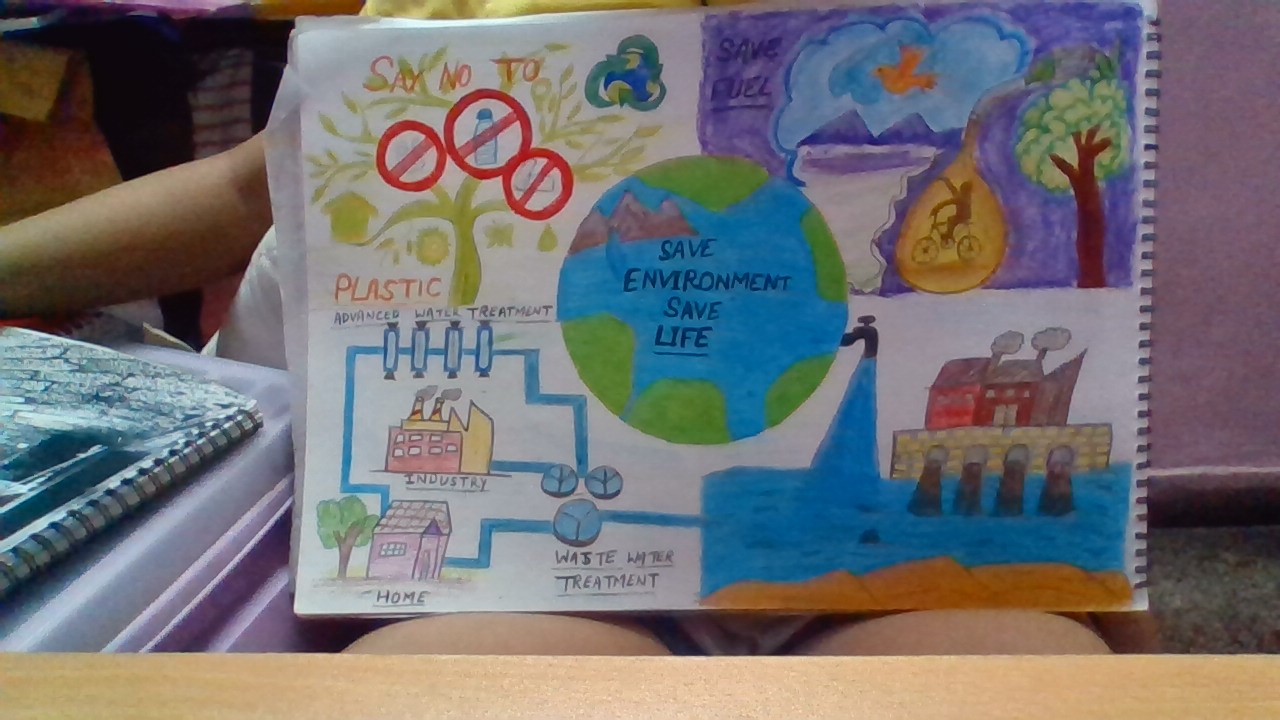 SAY NO TO
PLASTIC
SAVE
FUEL
SAVE
ENVIRONMENT
SAVE
LIFE
ADVANCED WATER TREATMENT
INDUSTRY
HOME
WASTE WATER
TREATMENT